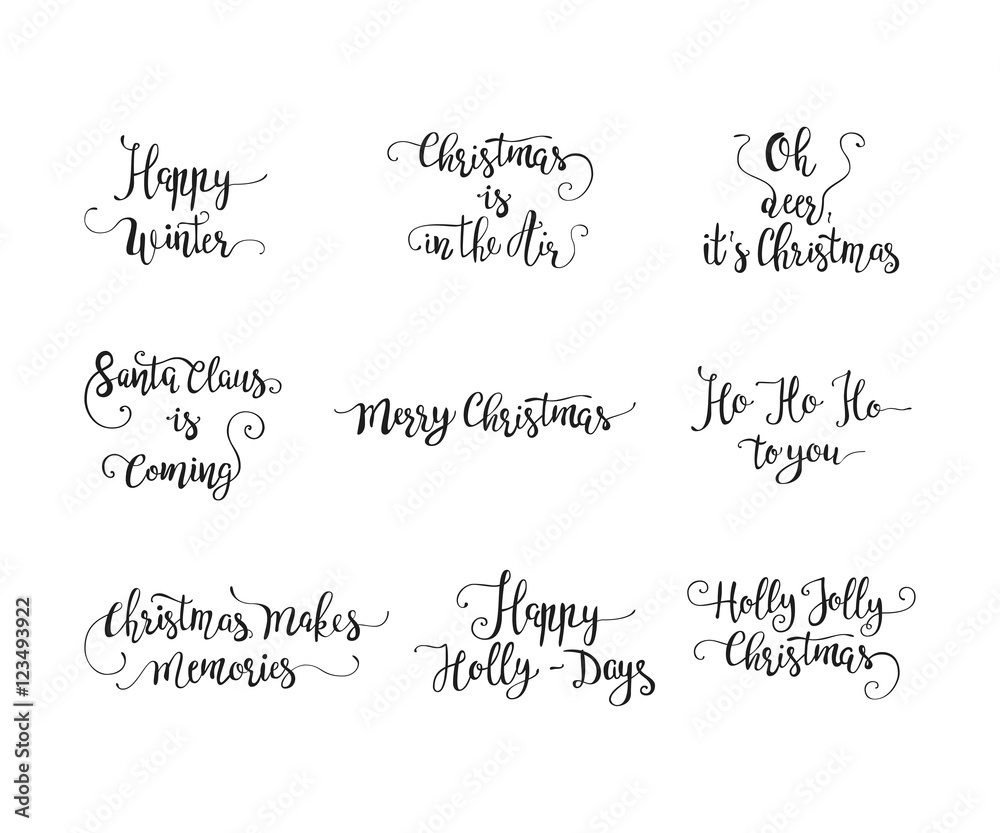 Happy
Winter
Christmas
is
in the Air
Oh
deer,
it's Christmas
Santa Claus
is
Coming
Merry Christmas
Ho Ho Ho
to you
Christmas Makes
Memories
Happy
Holly - Days
Holly Jolly
Christmas
Adobe Stock | #123493922